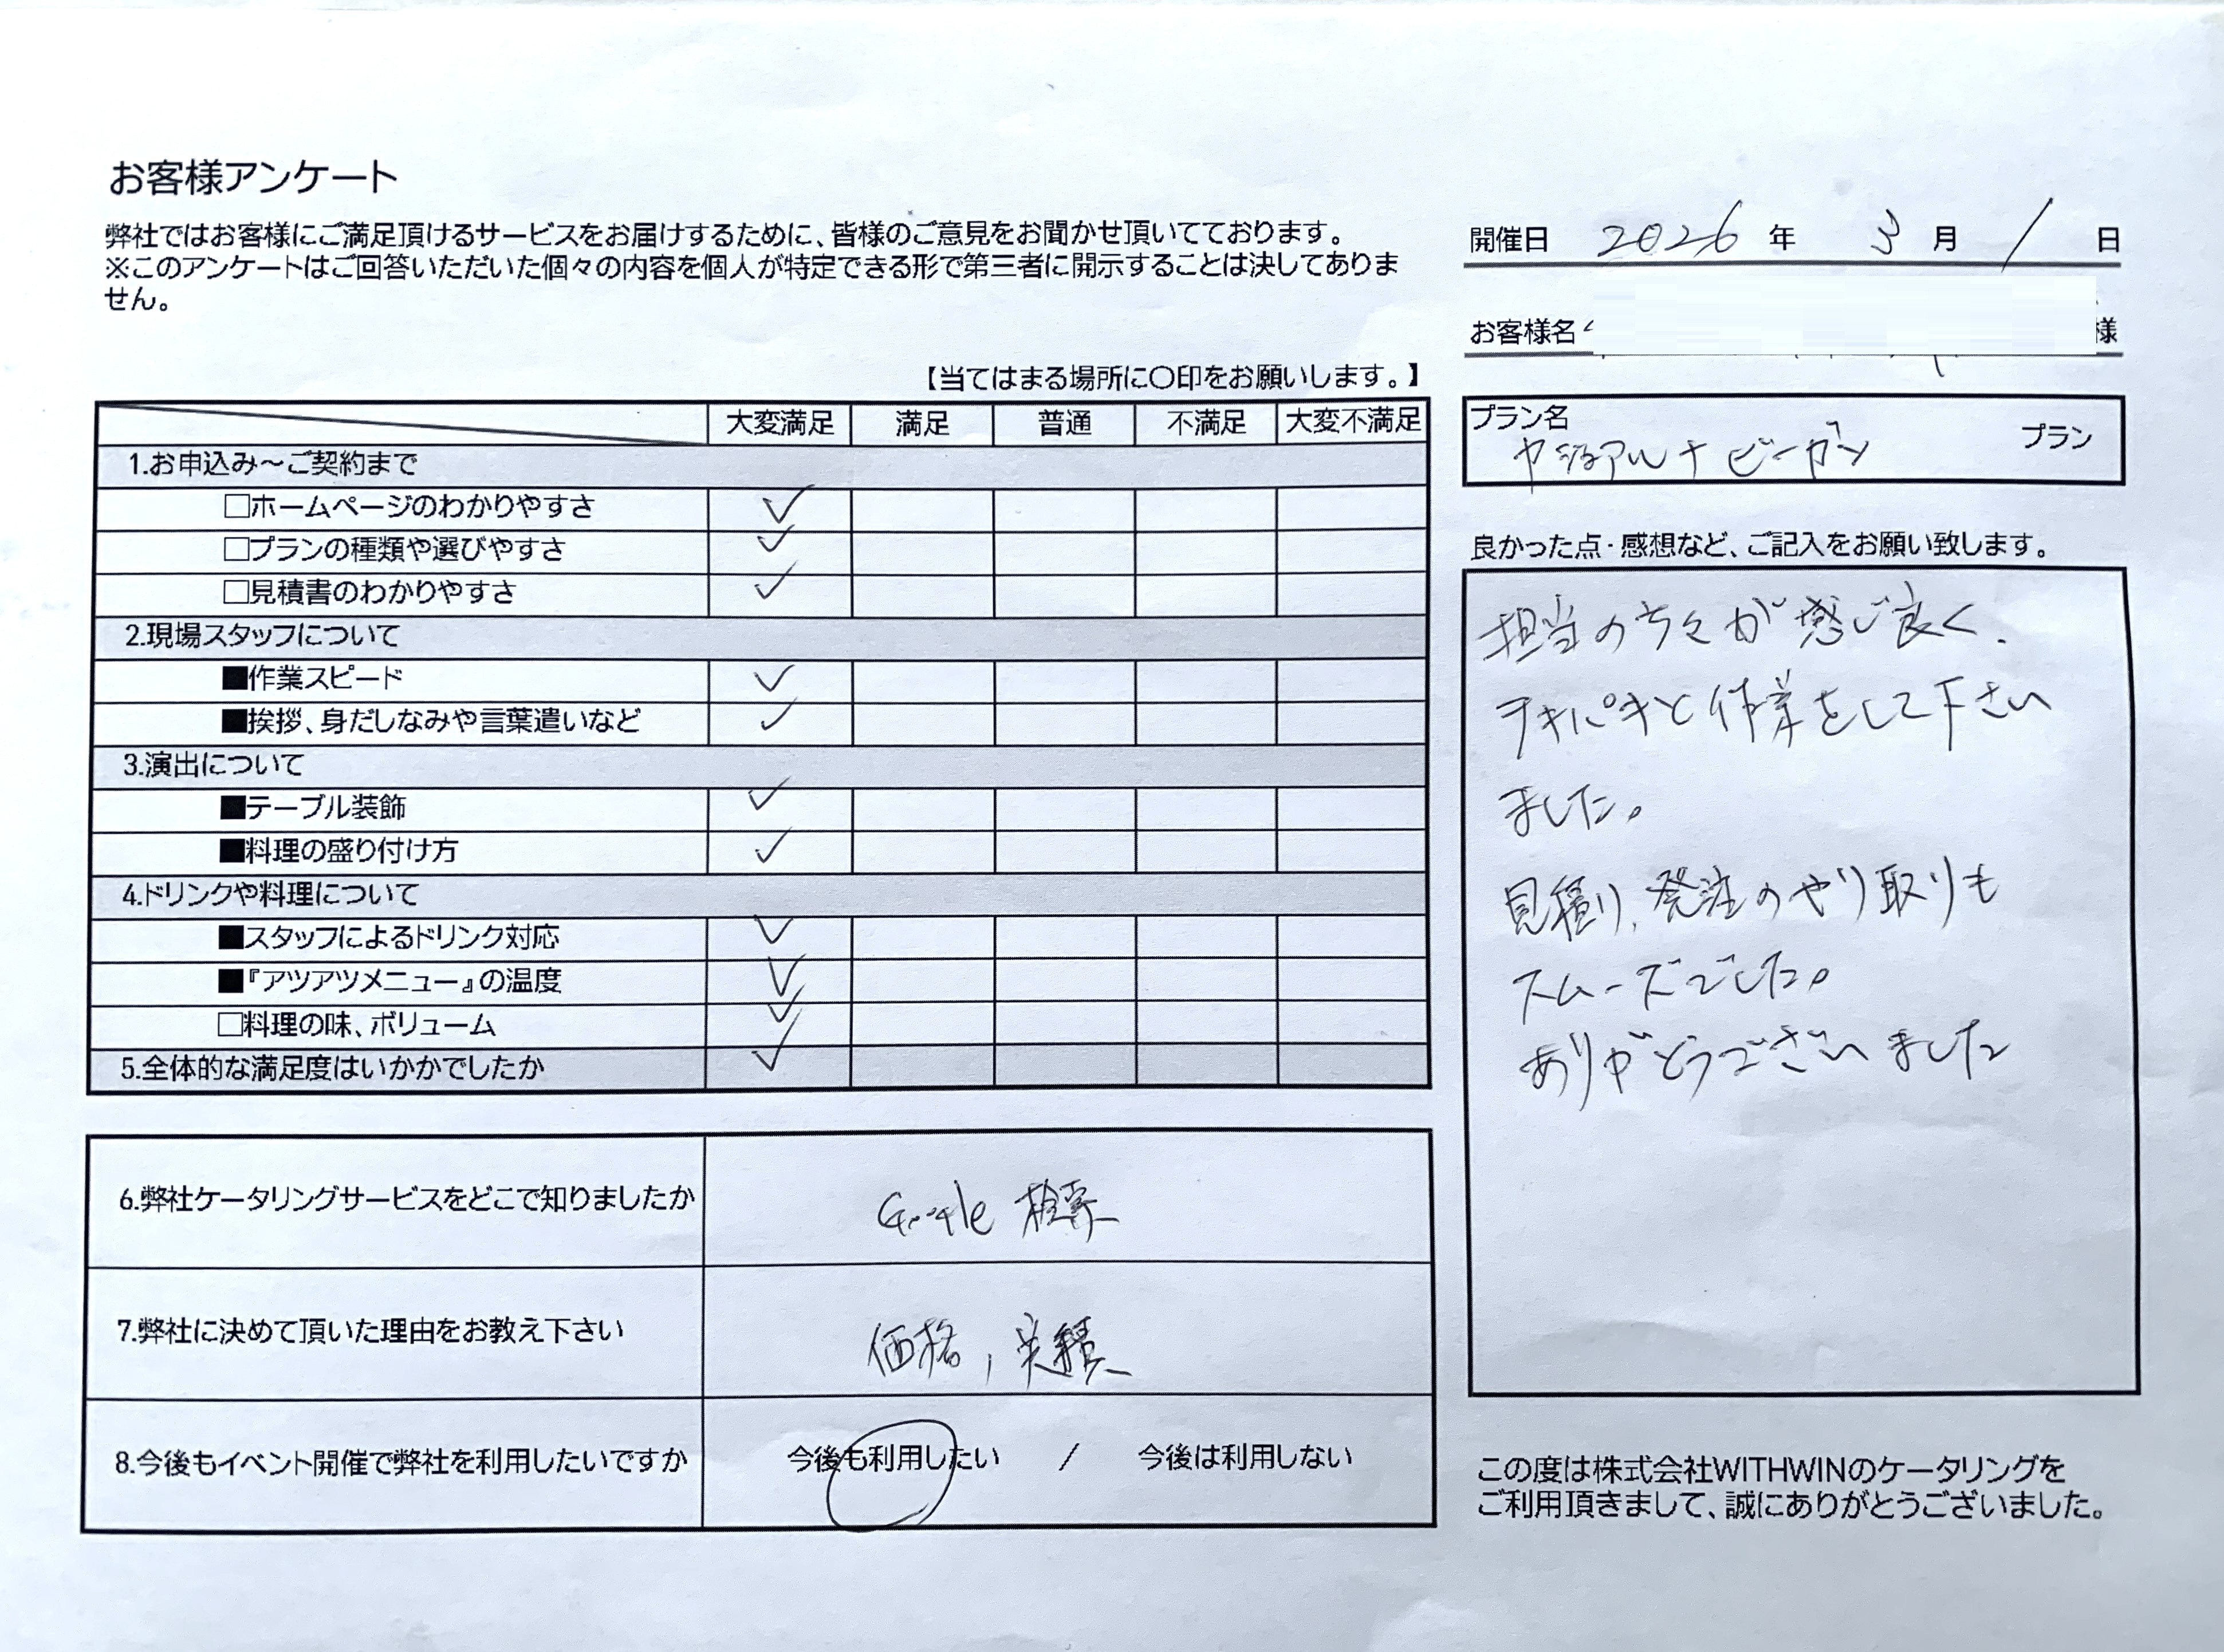 お客様アンケート
弊社ではお客様にご満足頂けるサービスをお届けするために、皆様のご意見をお聞かせ頂いてております。
※このアンケートはご回答いただいた個々の内容を個人が特定できる形で第三者に開示することは決してありま
せん。
【当てはまる場所に〇印をお願いします。】
大変満足 満足 普通 不満足 大変不満足
1.お申込み～ご契約まで
□ホームページのわかりやすさ ✓
□プランの種類や選びやすさ ✓
□見積書のわかりやすさ ✓
2.現場スタッフについて
■作業スピード ✓
■挨拶、身だしなみや言葉遣いなど ✓
3.演出について
■テーブル装飾 ✓
■料理の盛り付け方 ✓
4.ドリンクや料理について
■スタッフによるドリンク対応 ✓
■『アツアツメニュー』の温度 ✓
□料理の味、ボリューム ✓
5.全体的な満足度はいかかでしたか ✓
6.弊社ケータリングサービスをどこで知りましたか Google 検索
7.弊社に決めて頂いた理由をお教え下さい 価格, 実績
8.今後もイベント開催で弊社を利用したいですか 今後も利用したい / 今後は利用しない
開催日 2026 年 3 月 1 日
お客様名 様
プラン名
ビーガン プラン
良かった点・感想など、ご記入をお願い致します。
担当の方々が感じ良く、
テキパキと作業をして下さい
ました。
見積り、発注のやり取りも
スムーズでした。
ありがとうございました
この度は株式会社WITHWINのケータリングを
ご利用頂きまして、誠にありがとうございました。